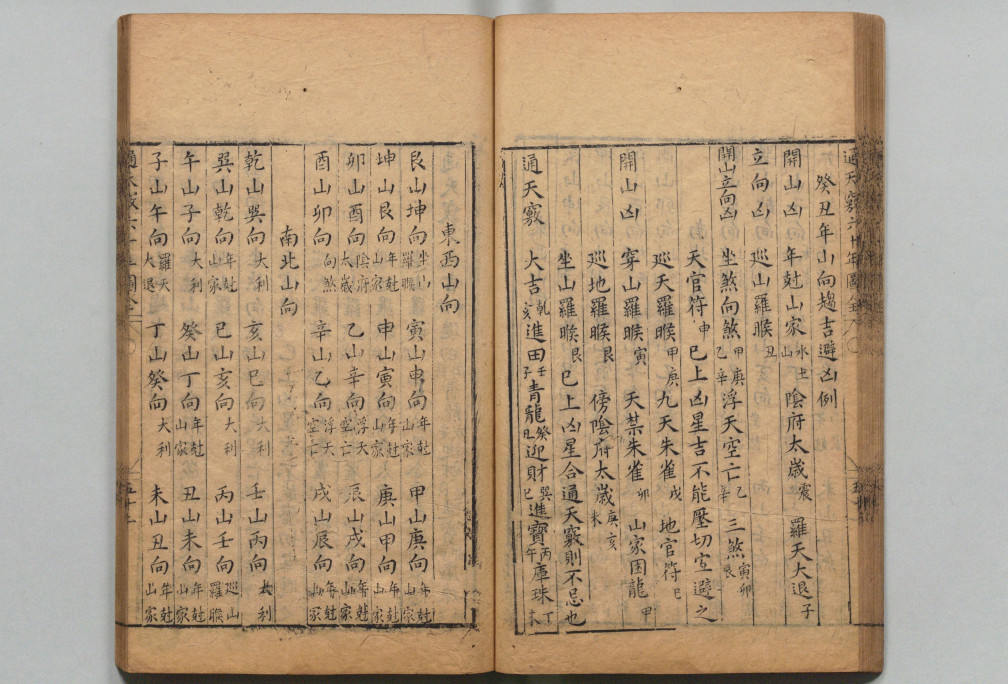 通天竅六十年圖全
癸丑年山向趨吉避凶例
開山凶 年尅山家水土山 陰府太歲震 羅天大退子
立向凶 巡山羅睺丑
開山立向凶 坐煞向煞甲庚乙辛 浮天空亡乙辛 三煞寅卯辰
天官符申 巳上凶星吉不能壓切宜避之
巡天羅睺甲庚 九天朱雀戌 地官符巳
開山凶 穿山羅睺寅 天禁朱雀卯 山家困龍甲
巡地羅睺艮 傍陰府太歲庚亥未
坐山羅睺艮 巳上凶星合通天竅則不忌也
通天竅 大吉乾亥 進田壬子 青龍癸丑 迎財巽巳 進寶丙午 庫珠丁未
東西山向
艮山坤向坐山羅睺 寅山申向年尅山家 甲山庚向年尅山家
坤山艮向年尅山家 申山寅向年尅山家 庚山甲向年尅山家
卯山酉向陰府太歲 乙山辛向浮天空亡 辰山戌向年尅山家
酉山卯向向煞 辛山乙向浮天空亡 戌山辰向年尅山家
南北山向
乾山巽向大利 亥山巳向大利 壬山丙向大利
巽山乾向年尅山家 巳山亥向大利 丙山壬向巡山羅睺
午山子向大利 癸山丁向年尅山家 丑山未向年尅山家
子山午向羅天大退 丁山癸向大利 未山丑向年尅山家
通天竅六十年圖全